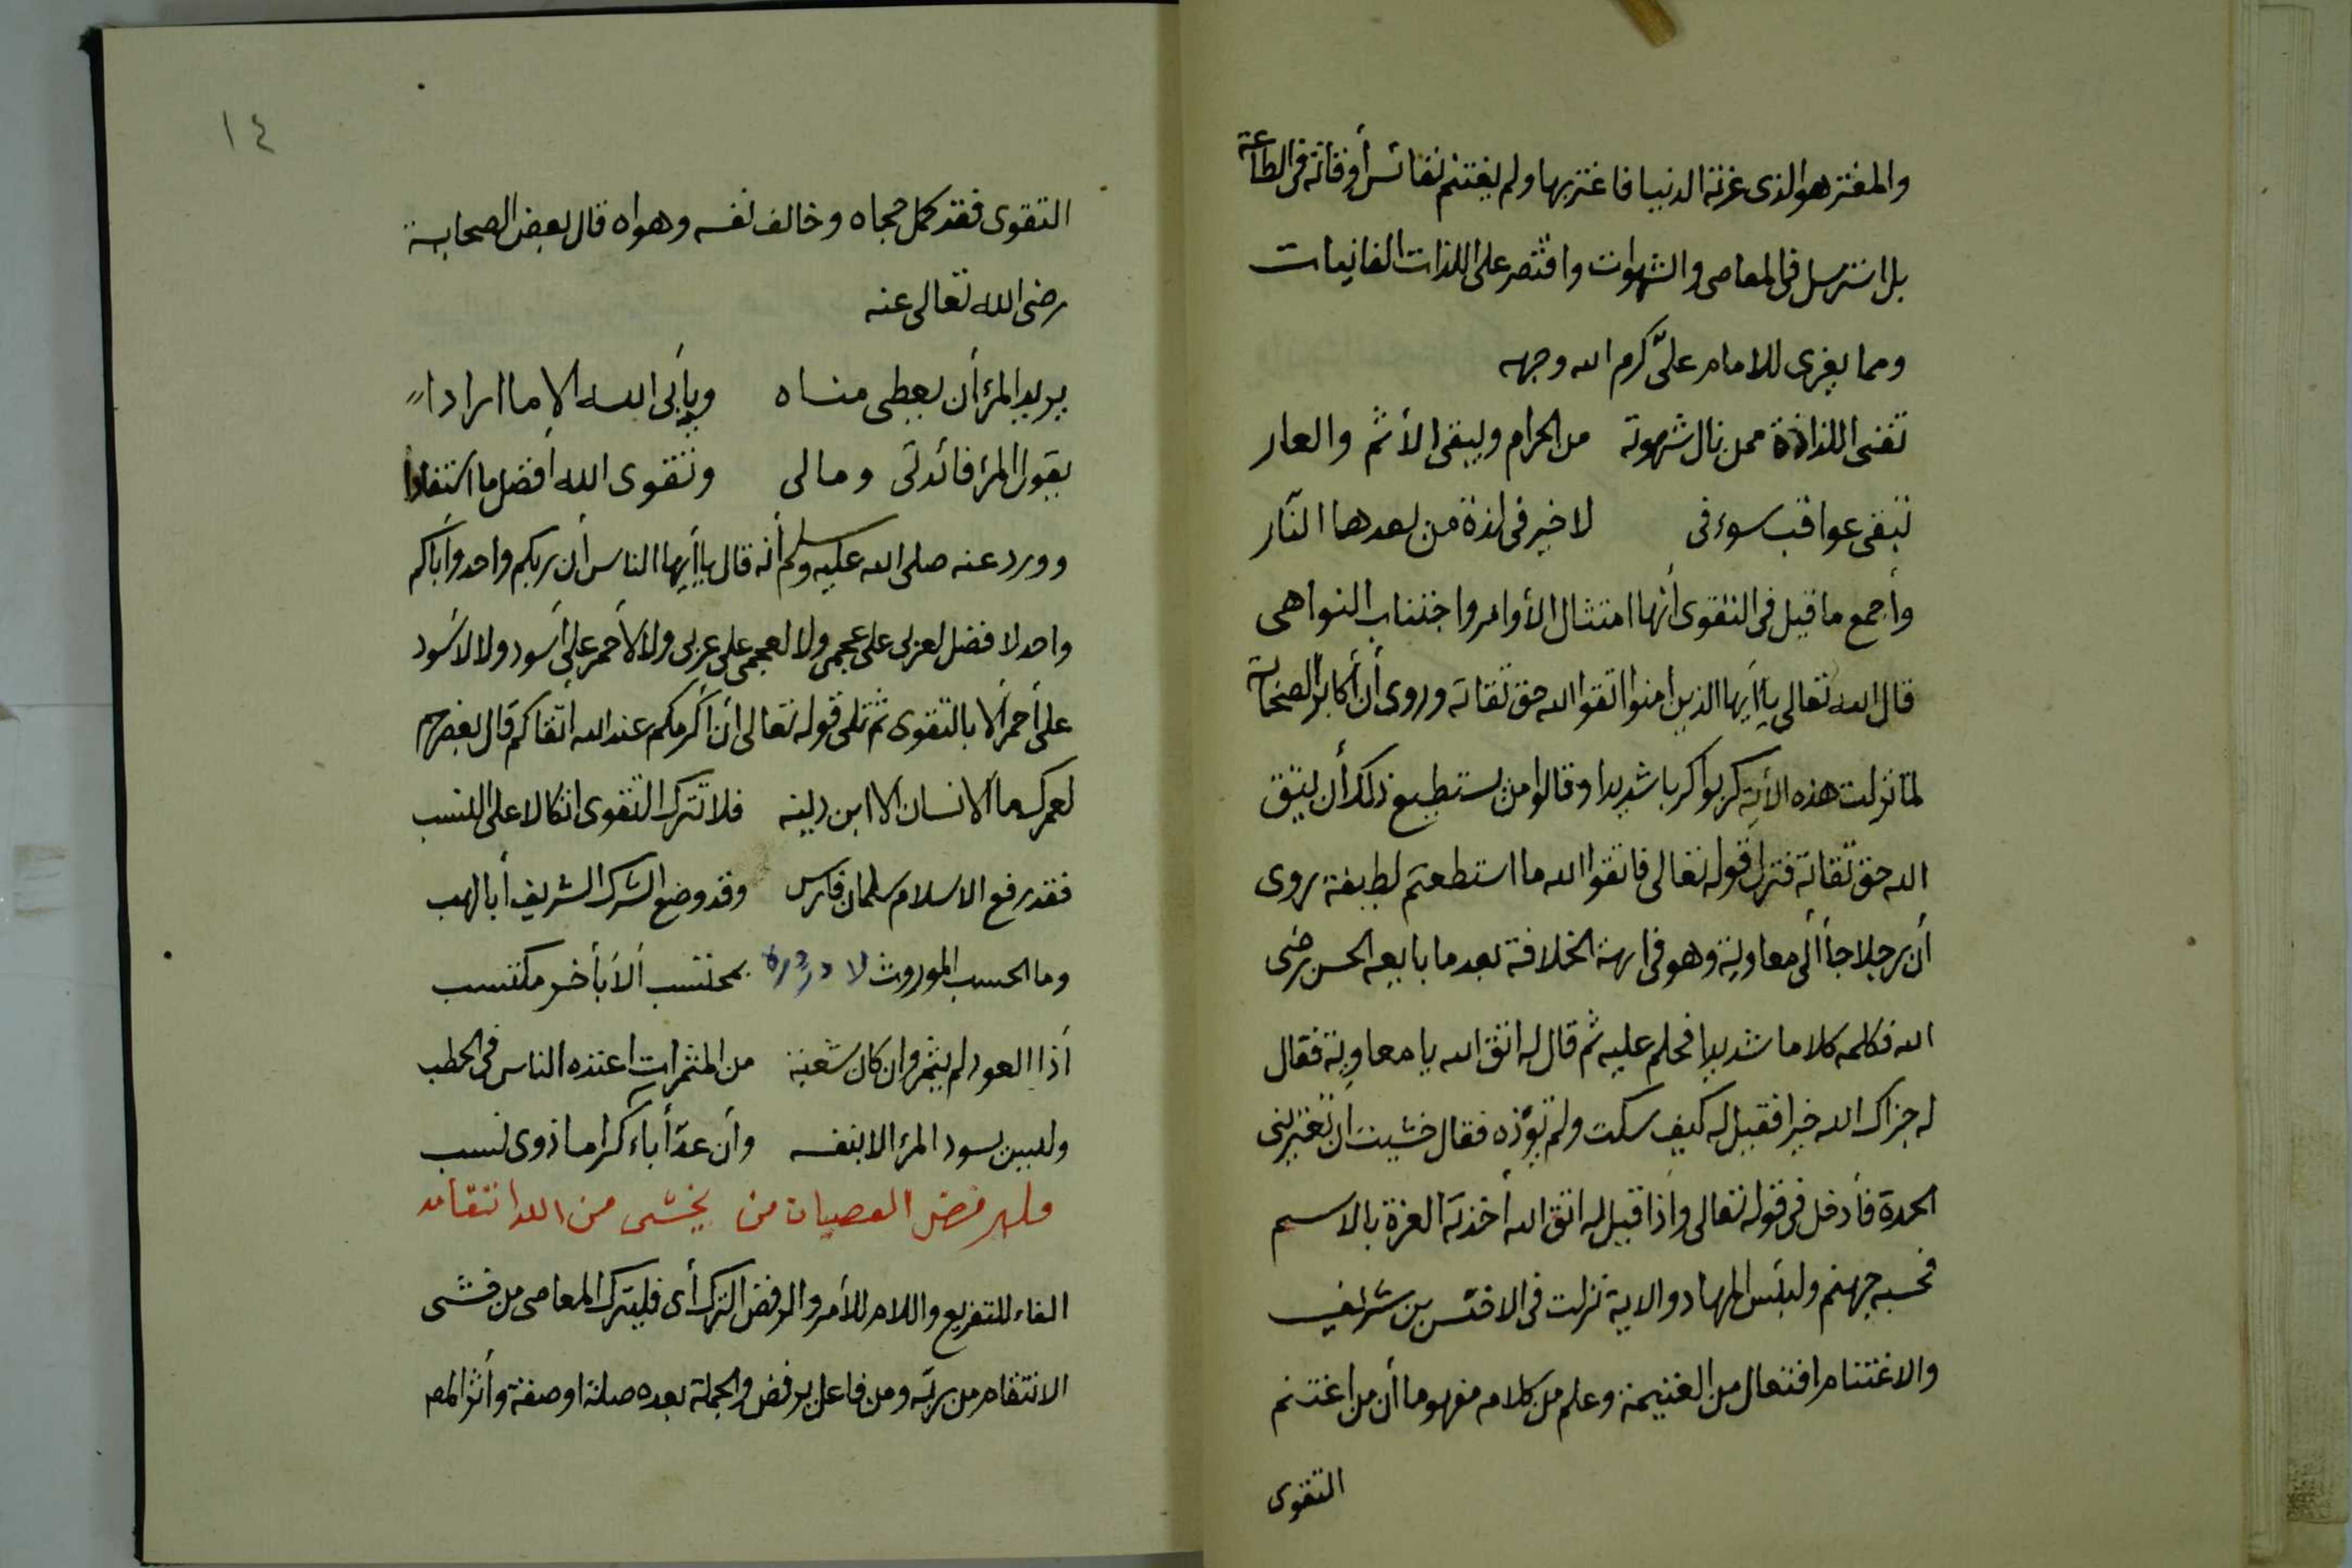 والمغتر هو الذى غرته الدنيا فاغتر بها ولم يغتنم نفائس أوقاته فى الطاعة
بل استرسل فى المعاصى والشهوات واقتصر على اللذات الفانيات
ومما يعزى للامام علىّ كرم الله وجهه
تفنى اللذاذة ممن نال شهوته من الحرام ويبقى الأثم والعار
تبقى عواقب سوء فى لا خير فى لذة من بعدها النّار
وأجمع ما قيل فى التقوى أنها امتثال الأوامر واجتناب النواهى
قال الله تعالى ياأيها الذين امنوا اتقوا الله حق تقاته وروى أن أكابر الصحابة
لمّا نزلت هذه الأية كربوا كربا شديدا وقالوا من يستطيع ذلك أن يتق
الله حق تقاته فنزل قوله تعالى فاتقوا الله ما استطعتم لطيفة روى
أن رجلا جأ ألى معاوية وهو فى ابهة الخلافة بعد ما بايعه الحسن رضى
الله فكلمه كلاما شديدا فحلم عليه ثم قال له اتق الله يا معاوية فقال
له جزاك الله خيرا فقيل له كيف سكت ولم تؤذه فقال خشيت أن تعترينى
الحدة فأدخل فى قوله تعالى وأذا قيل له اتق الله أخذته العزة بالاسم
فحسبه جهنم ولبئس المهاد والاية نزلت فى الاخنس بن شريف
والاغتنام افتعال من الغنيمة وعلم من كلامه مفهوما أن من اغتنم
التقوى
١٤
التقوى فقد كمل حجاه وخالف نفسه وهواه قال بعض الصحابة
رضى الله تعالى عنه
يريد المرء أن يعطى مناه ويأبى الله الا ما ارادا
يقول المرء فائدتى ومالى وتقوى الله أفضل ما استفادا
وورد عنه صلى الله عليه وسلم أنه قال ياأيها الناس أن ربكم واحد وأباكم
واحد لا فضل لعربى على عجمى ولا لعجمى على عربى ولا لأحمر على أسود ولا لاسود
على أحمر ألا بالتقوى ثم تلى قوله تعالى أن أكرمكم عند الله اتقاكم قال بعضهم
لعمرك ما الانسان الا ابن دينه فلا تترك التقوى اتكالا على النسب
فقد رفع الاسلام سلمان فارس وقد وضع الشرك الشريف أبا لهب
وما الحسب الموروث لا دردره بمحتسب ألا بأخر مكتسب
أذا العود لم يثمر وان كان شعبة من المثمرات اعتده الناس فى الحطب
وليس يسود المرء الا بنفسه وأن عدّ أباء كراما ذوى نسب
فليرفض العصيان من يخشى من الله انتقامه
الفاء للتفريع واللام للأمر والرفض الترك أى فليترك المعاصى من خشى
الانتقام من ربّه ومن فاعل يرفض والجملة بعده صلة أو صفة وأثر المص